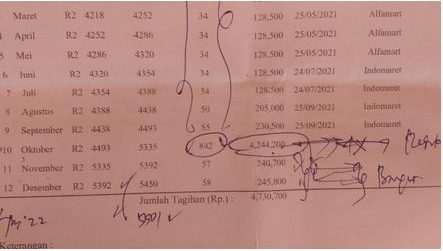 Maret R2 4218 4252 34 128,500 25/05/2021 Alfamart
4 April R2 4252 4286 34 128,500 25/05/2021 Alfamart
5 Mei R2 4286 4320 34 128,500 25/05/2021 Alfamart
6 Juni R2 4320 4354 34 128,500 24/07/2021 Indomaret
7 Juli R2 4354 4388 34 128,500 24/07/2021 Indomaret
8 Agustus R2 4388 4438 50 205,000 25/09/2021 Indomaret
9 September R2 4438 4493 55 230,500 25/09/2021 Indomaret
10 Oktober R2 4493 5335 842 4,244,200
11 November R2 5335 5392 57 240,700
12 Desember R2 5392 5450 58 245,800
Jumlah Tagihan (Rp.) : 4,730,700
Keterangan :